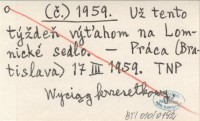 (č.) 1959. Už tento
týždeň výťahom na Lom-
nické sedlo. — Práca (Bra-
tislava) 17 III 1959. TNP
Wyciąg krzesełkowy